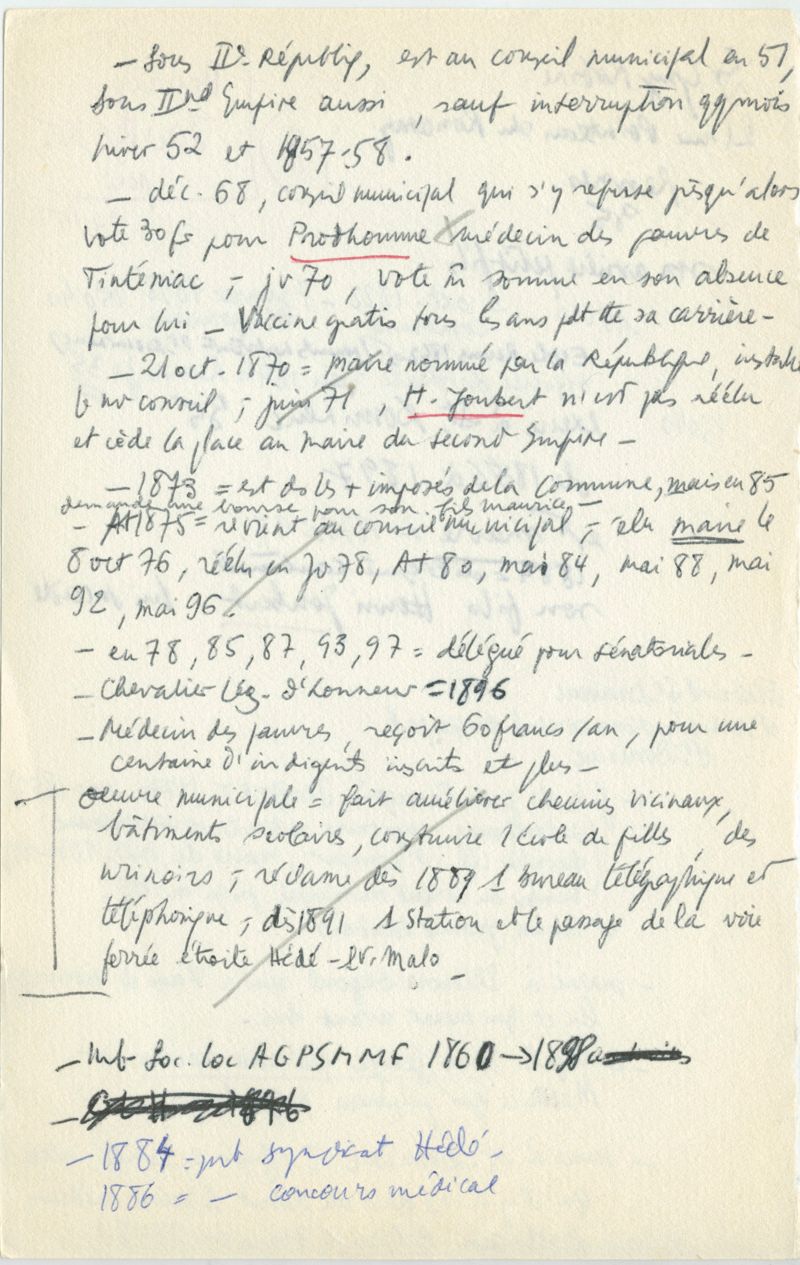 – Sous IIde Républiq, est au conseil municipal en 51,
Sous IInd Empire aussi, sauf interruption qq mois
hiver 52 et 1857-58.
– déc. 68, conseil municipal qui s'y refuse jusqu'alors
vote 30 fr pour Prodhomme médecin des pauvres de
Tinténiac ; jv 70, vote m̂ somme en son absence
pour lui – Vaccine gratis tous les ans pdt tte sa carrière –
– 21 oct. 1870 = maire nommé par la République, installe
le nv conseil ; juin 71, H. Joubert n'est pas réélu
et cède la place au maire du Second Empire –
– 1873 = est ds les + imposés de la Commune, mais en 85
demande une bourse pour son fils Maurice –
– At 1875 = revient au conseil municipal ; élu maire le
8 oct 76, réélu en Jv 78, At 80, mai 84, mai 88, mai
92, mai 96 –
– en 78, 85, 87, 93, 97 = délégué pour sénatoriales –
– Chevalier Lég. d'Honneur = 1896
– Médecin des pauvres, reçoit 60 francs/an, pour une
centaine d'indigents inscrits et plus –
oeuvre municipale = fait améliorer chemins vicinaux,
bâtiments scolaires, construire 1 école de filles, des
urinoirs ; réclame dès 1889 1 bureau télégraphique et
téléphonique ; dès 1891 1 Station et le passage de la voie
ferrée étroite Hédé – St. Malo –
– mb Soc. loc AGPSMMF 1860 → 1898
– 1884 = mb syndicat Hédé –
1886 = – concours médical